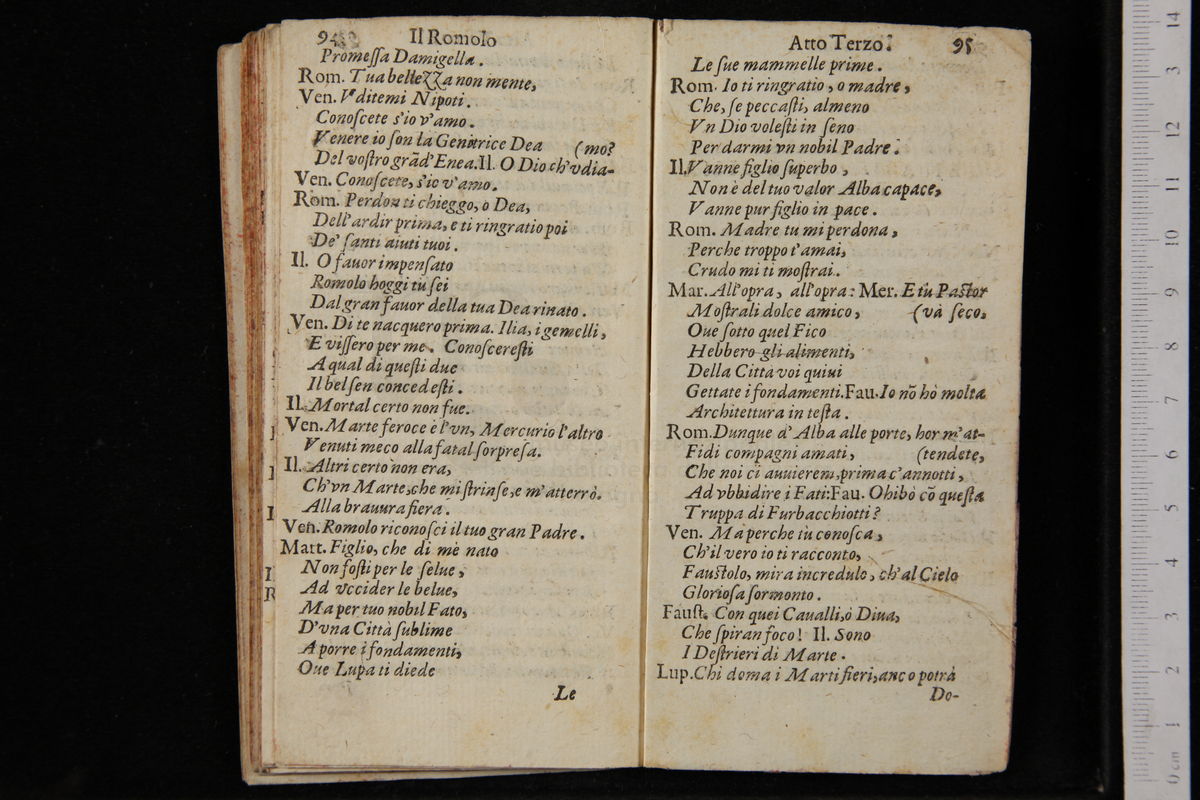 94 Il Romolo
Promeſſa Damigella.
Rom. Tua bellezza non mente,
Ven. Vditemi Nipoti.
Conoſcete s'io v'amo.
Venere io ſon la Genitrice Dea
Del vostro grãd'Enea. Il. O Dio ch'vdia- (mo?
Ven. Conoſcete, s'io v'amo.
Rom. Perdon ti chieggo, o Dea,
Dell'ardir prima, e ti ringratio poi
De' ſanti aiuti tuoi.
Il. O fauor impenſato
Romolo hoggi tù ſei
Dal gran fauor della tua Dea rinato.
Ven. Di te nacquero prima. Ilia, i gemelli,
E viſſero per me. Conoſcereſti
A qual di queſti due
Il bel ſen concedeſti.
Il. Mortal certo non fue.
Ven. Marte feroce è l'vn, Mercurio l'altro
Venuti meco alla fatal ſorpreſa.
Il. Altri certo non era,
Ch'vn Marte, che mi ſtrinſe, e m'atterrò.
Alla brauura fiera.
Ven. Romolo riconoſci il tuo gran Padre.
Matt. Figlio, che di me nato
Non foſti per le ſelue,
Ad vccider le belue,
Ma per tuo nobil Fato,
D'vna Città ſublime
A porre i fondamenti,
Oue Lupa ti diede
Le
Atto Terzo. 95
Le ſue mammelle prime.
Rom. Io ti ringratio, o madre,
Che, ſe peccaſti, almeno
Vn Dio voleſti in ſeno
Per darmi vn nobil Padre.
Il. Vanne figlio ſuperbo,
Non è del tuo valor Alba capace,
Vanne pur figlio in pace.
Rom. Madre tu mi perdona,
Perche troppo t'amai,
Crudo mi ti moſtrai.
Mar. All'opra, all'opra: Mer. E tù Paſtor
Moſtrali dolce amico, (và ſeco,
Oue ſotto quel Fico
Hebbero gli alimenti,
Della Città voi quiui
Gettate i fondamenti. Fau. Io nõ hò molta
Architettura in teſta.
Rom. Dunque d'Alba alle porte, hor m'at-
Fidi compagni amati, (tendete,
Che noi ci auuierem, prima c'annotti,
Ad vbbidire i Fati: Fau. Ohibò cõ queſta
Truppa di Furbacchiotti?
Ven. Mà perche tù conoſca,
Ch'il vero io ti racconto,
Fauſtolo, mira incredulo, ch'al Cielo
Glorioſa ſormonto.
Fauſt. Con quei Caualli, ò Diua,
Che ſpiran foco! Il. Sono
I Deſtrieri di Marte.
Lup. Chi doma i Marti fieri, anco potrà
Do-
14
3
12
11
10
9
8
7
6
5
4
3
2
1
0 cm